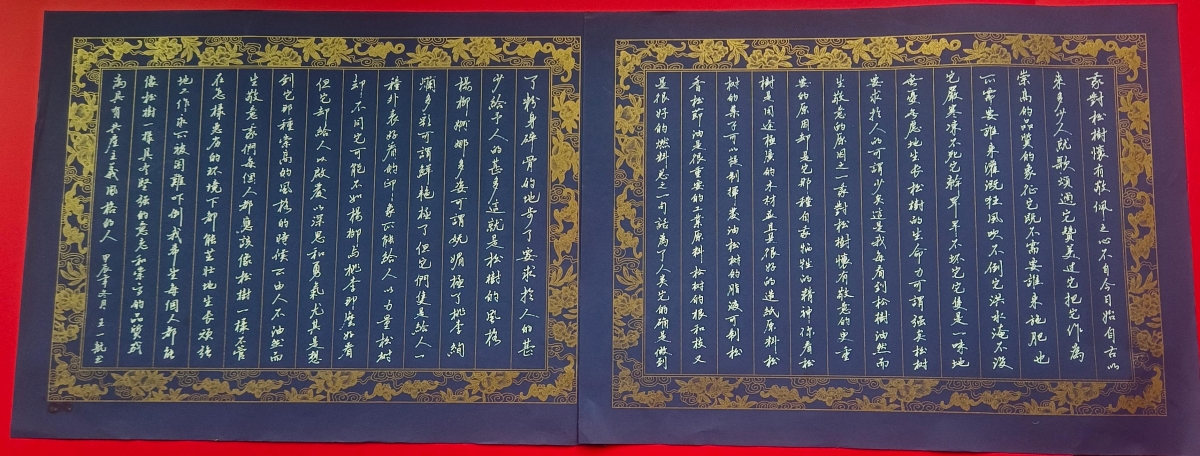 我對松樹懷有敬佩之心不自今日始自古以
來多少人就歌頌過它贊美過它把它作為
崇高的品質的象征它既不需要誰來施肥也
不需要誰來灌溉狂風吹不倒它洪水淹不沒
它嚴寒凍不死它幹旱旱不坏它它隻是一味地
無憂無慮地生長松樹的生命力可謂強矣松樹
要求於人的可謂少矣這是我每看到松樹油然而
生敬意的原因之一我對松樹懷有敬意的更重
要的原因卻是它那種自我犧牲的精神你看松
樹是用途極廣的木材並且是很好的造紙原料松
樹的葉子可以提制揮發油松樹的脂液可制松
香松節油是很重要的工業原料松樹的根和枝又
是很好的燃料總之一句話為了人類它的確是做到
了粉身碎骨的地步了要求於人的甚
少給予人的甚多這就是松樹的風格
楊柳婀娜多姿可謂嫵媚極了桃李絢
爛多彩可謂鮮艷極了但它們隻是給人一
種外表好看的印象不能給人以力量松樹
卻不同它可能不如楊柳與桃李那麼好看
但它卻給人以啟發以深思和勇氣尤其是想
到它那種崇高的風格的時候不由人不油然而
生敬意我們每個人都應該像松樹一樣不管
在怎樣惡劣的环境下都能茁壯地生長頑強
地工作永不被困難嚇倒我希望每個人都能
像松樹一樣具有堅強的意志和崇高的品質成
為具有共產主義風格的人 甲辰年冬月 王一